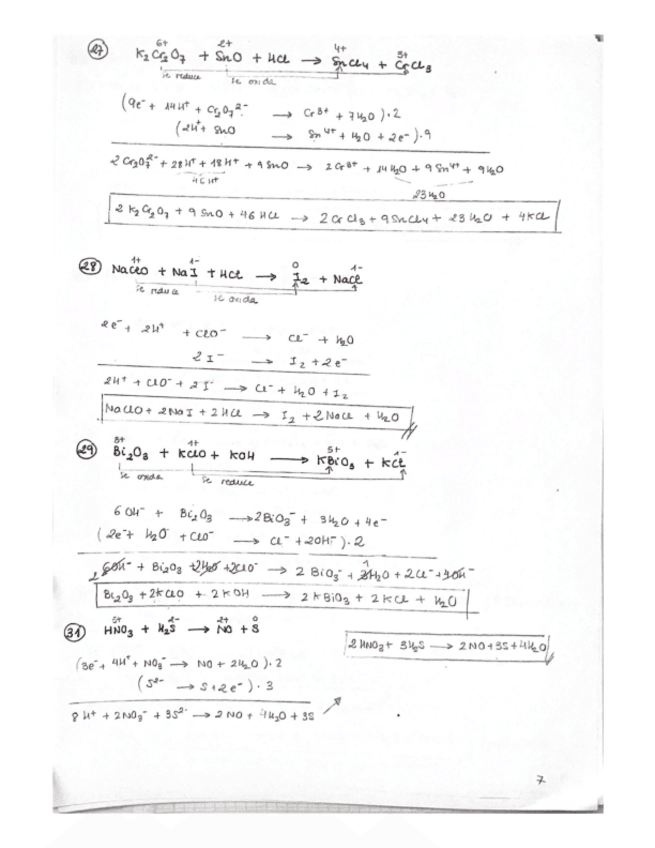 6+ 2+ 4+ 3+
27 K₂Cr₂O₇ + SnO + HCl → SnCl₄ + CrCl₃
se reduce se oxida
(9e⁻ + 14H⁺ + Cr₂O₇²⁻ → Cr³⁺ + 7H₂O)·2
(2H⁺ + SnO → Sn⁴⁺ + H₂O + 2e⁻)·9
2Cr₂O₇²⁻ + 28H⁺ + 18H⁺ + 9SnO → 2Cr³⁺ + 14H₂O + 9Sn⁴⁺ + 9H₂O
46H⁺ 23H₂O
2K₂Cr₂O₇ + 9SnO + 46HCl → 2CrCl₃ + 9SnCl₄ + 23H₂O + 4KCl
1+ 1- 0 1-
28 NaClO + NaI + HCl → I₂ + NaCl
se reduce se oxida
2e⁻ + 2H⁺ + ClO⁻ → Cl⁻ + H₂O
2I⁻ → I₂ + 2e⁻
2H⁺ + ClO⁻ + 2I⁻ → Cl⁻ + H₂O + I₂
NaClO + 2NaI + 2HCl → I₂ + 2NaCl + H₂O
3+ 1+ 5+ 1-
29 Bi₂O₃ + KClO + KOH → KBiO₃ + KCl
se oxida se reduce
6OH⁻ + Bi₂O₃ → 2BiO₃⁻ + 3H₂O + 4e⁻
(2e⁻ + H₂O + ClO⁻ → Cl⁻ + 2OH⁻)·2
2 6OH⁻ + Bi₂O₃ + 2H₂O + 2ClO⁻ → 2BiO₃⁻ + 3H₂O + 2Cl⁻ + 4OH⁻
Bi₂O₃ + 2KClO + 2KOH → 2KBiO₃ + 2KCl + H₂O
5+ 2- 2+ 0
31 HNO₃ + H₂S → NO + S
2HNO₃ + 3H₂S → 2NO + 3S + 4H₂O
(3e⁻ + 4H⁺ + NO₃⁻ → NO + 2H₂O)·2
(S²⁻ → S + 2e⁻)·3
8H⁺ + 2NO₃⁻ + 3S²⁻ → 2NO + 4H₂O + 3S
7